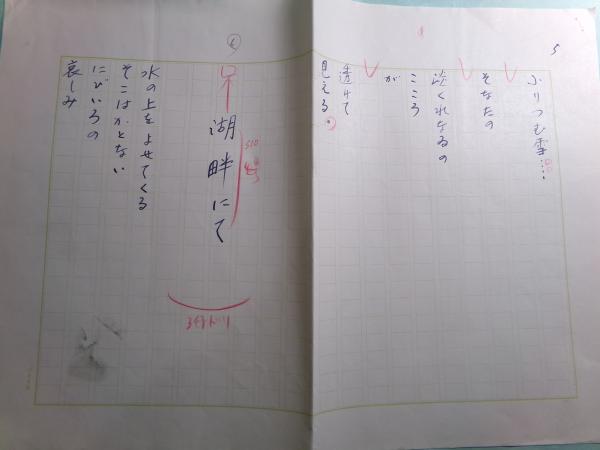 5
ふりつむ雪……
そなたの
淡くれなゐの
こころ
が
透けて
見える。
湖畔にて
水の上をよせてくる
そこはかとない
にびいろの
哀しみ